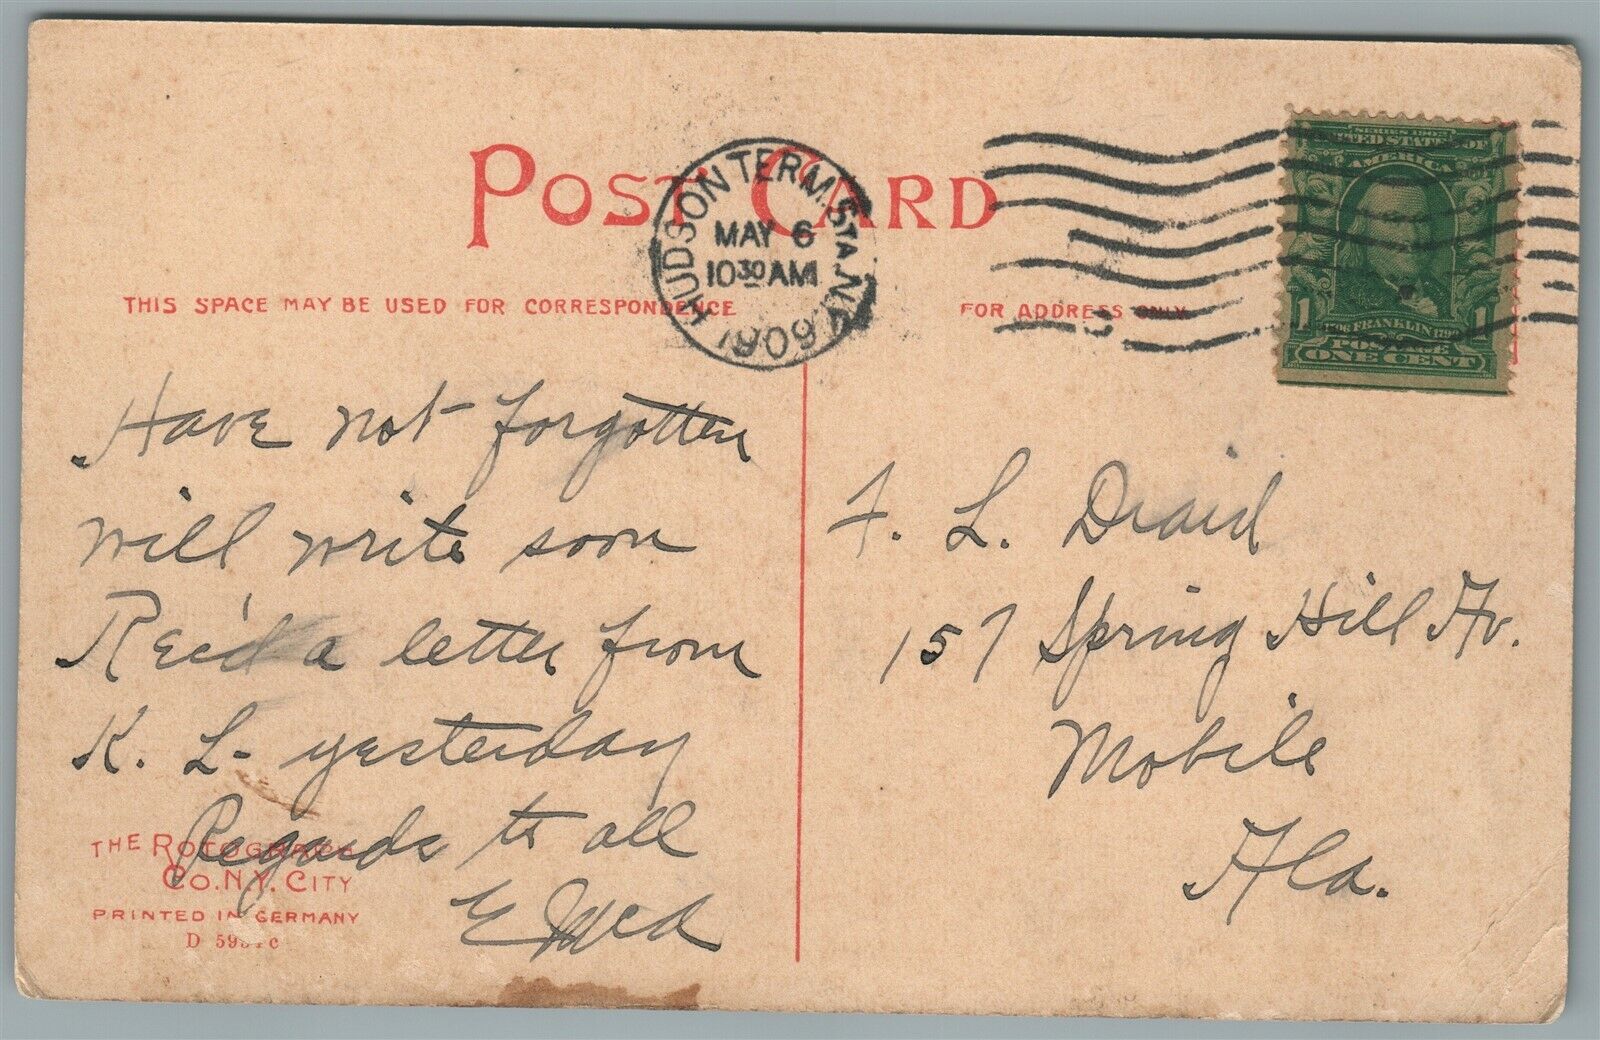 POST CARD
HUDSON TERM. STA. N.Y.
MAY 6
10 30 AM
1909
SERIES 1902
UNITED STATES OF
AMERICA
1706 FRANKLIN 1790
1 1
POSTAGE
ONE CENT
THIS SPACE MAY BE USED FOR CORRESPONDENCE
FOR ADDRESS ONLY
Have not forgotten
will write soon
Rec'd a letter from
K. L- yesterday
Regards to all
F. L.
157 Spring Hill Av.
Mobile
Ala.
THE ROTOGRAPH
CO. N.Y. CITY
PRINTED IN GERMANY